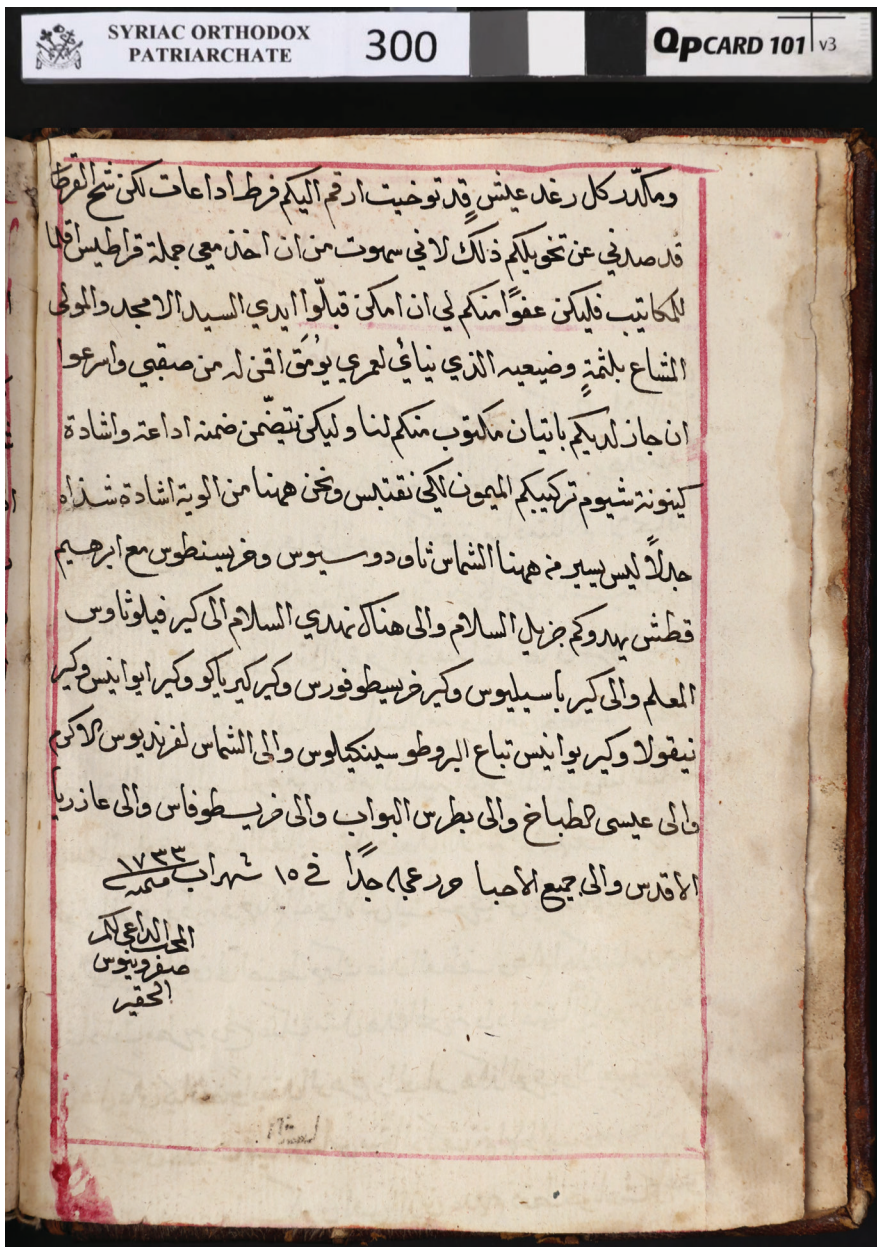 SYRIAC ORTHODOX
PATRIARCHATE
300
QPCARD 101 v3
ومكدّر كل رغد عيش قد توخيت ارقم اليكم فرط اداعات لكن شح القرطا
قد صدني عن تخويلكم ذلك لاني سهوت من ان اخذ معي جملة قراطيس اقلما
للمكاتيب فليكن عفوًا منكم لي ان امكن قبلّوا ايدي السيد الامجد والمولى
الشاع بلثمةٍ وضيعيه الذي نيائي لعمري يُومَق اقن له من صقبي واسرعوا
ان جاز لديكم باتيان مكتوب منكم لنا وليكن تتضّمن ضمنه اداعة واشادة
كينونة شيوم تركيبكم الميمون لكي نقتبس ونحن ههنا من الوية اشادة شذاه
جدلاً ليس يسير من ههنا الشماس ثاودوسيوس وخريسنطوس مع ابرهيم
قطش يهدوكم جزيل السلام والى هناك نهدي السلام الى كير فيلوثاوس
المعلم والى كير باسيليوس وكير خريسطوفورس وكير كيرياكو وكير ايوانيس وكير
نيقولا وكير يوانيس تباع البروطوسينكيلوس والى الشماس لفرنديوس الاكرم
والى عيسى الطباخ والى بطرس البواب والى خريسطوفاس والى عازريا
الاقدس والى جميع الاحبا حرر عجله جدًا في ١٥ شهر اب سنة ١٧٣٣
المحب الداعي لكم
صفرونيوس
الحقير